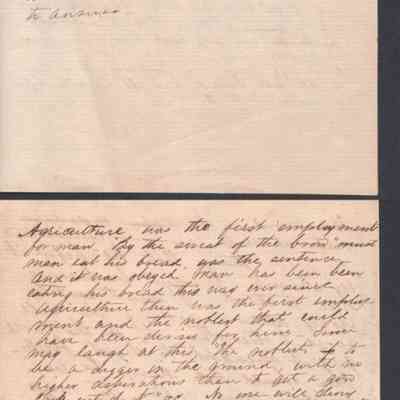 to answer
Agriculture was the first employment
for man. By the sweat of the brow must
man eat his bread, was the sentence
And it was obeyed. Man has been been
eating his bread this way ever since
Agriculture then was the first employ-
ment and the noblest that could
have been for him. Some
may laugh at this. The noblest to
be a digger in the ground, with no
higher aspirations than to get a good
out of No one will deny